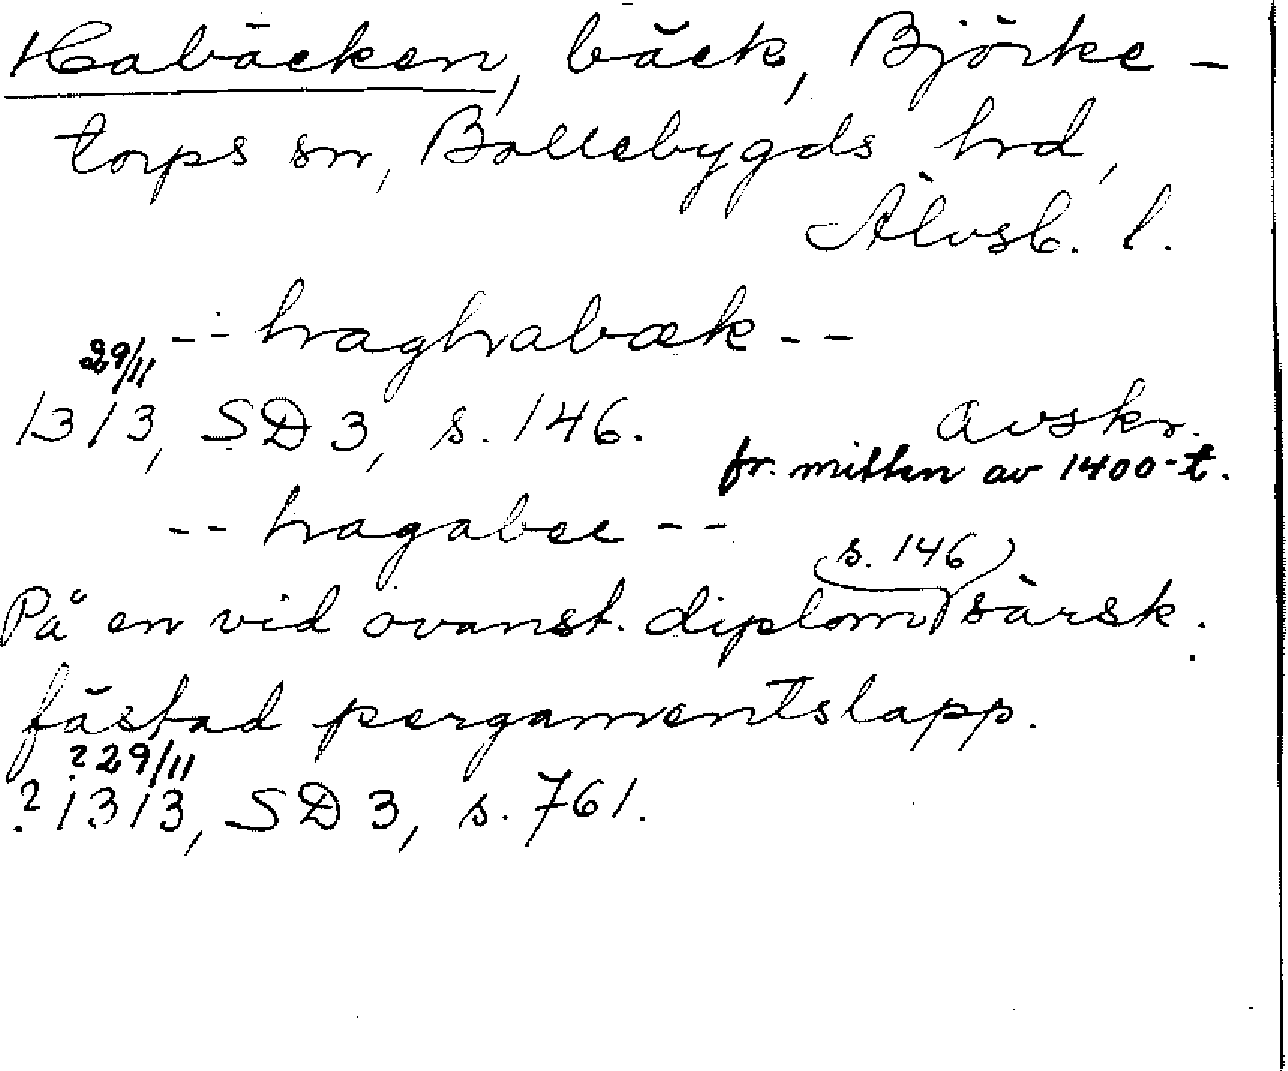 Habäcken, bäck, Björke-
torps sn, Bollebygds hrd,
Älvsb. l.
-- haghabæk --
29/11
1313, SD 3, s. 146. Avskr.
fr. mitten av 1400-t.
-- hagabec --
s. 146
På en vid ovanst. diplom särsk.
fästad pergamentslapp.
? 29/11
? 1313, SD 3, s. 761.